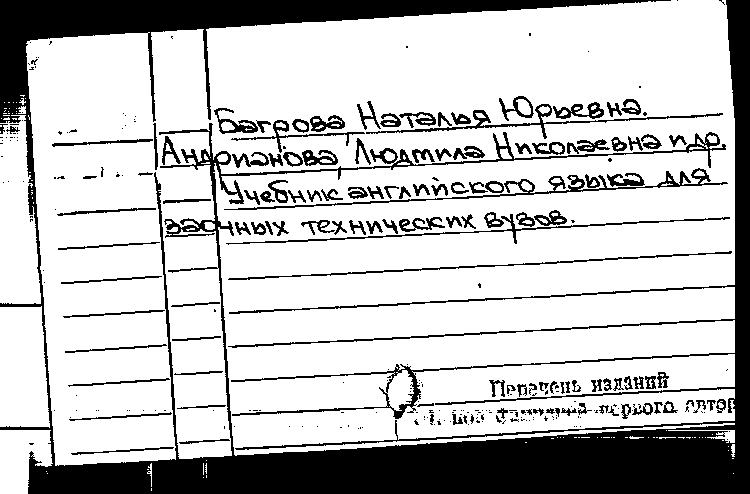 Багрова, Наталья Юрьевна.
Андрианова, Людмила Николаевна и др.
Учебник английского языка для
заочных технических вузов.
Перечень изданий
первого автор